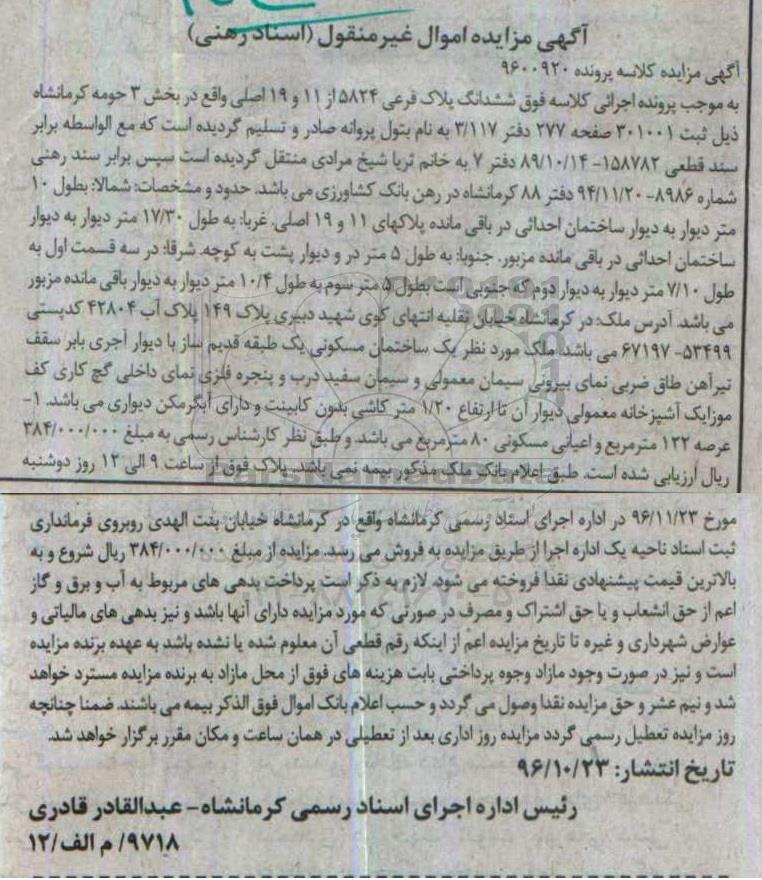 آگهی مزایده اموال غیرمنقول (اسناد رهنی)
آگهی مزایده کلاسه پرونده ۹۶۰۰۹۲۰
به موجب پرونده اجرائی کلاسه فوق ششدانگ پلاک فرعی ۵۸۲۴ از ۱۱ و ۱۹ اصلی واقع در بخش ۳ حومه کرمانشاه
ذیل ثبت ۳۰۱۰۰۱ صفحه ۲۷۷ دفتر ۳/۱۱۷ به نام بتول پروانه صادر و تسلیم گردیده است که مع الواسطه برابر
سند قطعی ۱۵۸۷۸۲- ۸۹/۱۰/۱۴ دفتر ۷ به خانم ثریا شیخ مرادی منتقل گردیده است سپس برابر سند رهنی
شماره ۸۹۸۶- ۹۴/۱۱/۲۰ دفتر ۸۸ کرمانشاه در رهن بانک کشاورزی می باشد. حدود و مشخصات: شمالا: بطول ۱۰
متر دیوار به دیوار ساختمان احداثی در باقی مانده پلاکهای ۱۱ و ۱۹ اصلی. غربا: به طول ۱۷/۳۰ متر دیوار به دیوار
ساختمان احداثی در باقی مانده مزبور. جنوبا: به طول ۵ متر در و دیوار پشت به کوچه. شرقا: در سه قسمت اول به
طول ۷/۱۰ متر دیوار به دیوار دوم که جنوبی است بطول ۵ متر سوم به طول ۱۰/۴ متر دیوار به دیوار باقی مانده مزبور
می باشد. آدرس ملک: در کرمانشاه خیابان نقلیه انتهای کوی شهید دبیری پلاک ۱۴۹ پلاک آب ۴۲۸۰۴ کدپستی
۵۳۴۹۹- ۶۷۱۹۷ می باشد. ملک مورد نظر یک ساختمان مسکونی یک طبقه قدیم ساز با دیوار آجری بابر سقف
تیرآهن طاق ضربی نمای بیرونی سیمان معمولی و سیمان سفید درب و پنجره فلزی نمای داخلی گچ کاری کف
موزایک آشپزخانه معمولی دیوار آن تا ارتفاع ۱/۲۰ متر کاشی بدون کابینت و دارای آبگرمکن دیواری می باشد. ۱-
عرصه ۱۲۲ مترمربع و اعیانی مسکونی ۸۰ مترمربع می باشد. و طبق نظر کارشناس رسمی به مبلغ ۳۸۴/۰۰۰/۰۰۰
ریال ارزیابی شده است. طبق اعلام بانک ملک مذکور بیمه نمی باشد. پلاک فوق از ساعت ۹ الی ۱۲ روز دوشنبه
مورخ ۹۶/۱۱/۲۳ در اداره اجرای اسناد رسمی کرمانشاه واقع در کرمانشاه خیابان بنت الهدی روبروی فرمانداری
ثبت اسناد ناحیه یک اداره اجرا از طریق مزایده به فروش می رسد. مزایده از مبلغ ۳۸۴/۰۰۰/۰۰۰ ریال شروع و به
بالاترین قیمت پیشنهادی نقدا فروخته می شود. لازم به ذکر است پرداخت بدهی های مربوط به آب و برق و گاز
اعم از حق انشعاب و یا حق اشتراک و مصرف در صورتی که مورد مزایده دارای آنها باشد و نیز بدهی های مالیاتی و
عوارض شهرداری و غیره تا تاریخ مزایده اعم از اینکه رقم قطعی آن معلوم شده یا نشده باشد به عهده برنده مزایده
است و نیز در صورت وجود مازاد وجوه پرداختی بابت هزینه های فوق از محل مازاد به برنده مزایده مسترد خواهد
شد و نیم عشر و حق مزایده نقدا وصول می گردد و حسب اعلام بانک اموال فوق الذکر بیمه می باشند. ضمنا چنانچه
روز مزایده تعطیل رسمی گردد مزایده روز اداری بعد از تعطیلی در همان ساعت و مکان مقرر برگزار خواهد شد.
تاریخ انتشار: ۹۶/۱۰/۲۳
رئیس اداره اجرای اسناد رسمی کرمانشاه- عبدالقادر قادری
۹۷۱۸/ م الف/۱۲